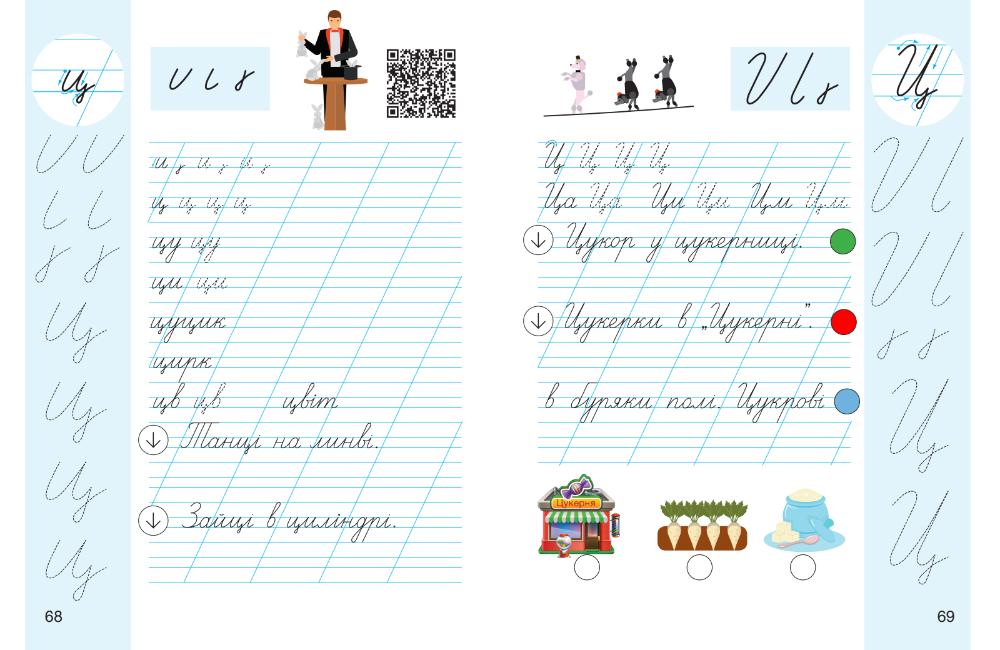 ц
и ц и ц и ц
ц ц ц ц
цу цу
ци ци
цуцик
цирк
цв цв цвіт
Танці на линві.
Зайці в циліндрі.
68
Ц
Ц Ц Ц Ц
Ца Ца Ци Ци Цм Цм
Цукор у цукерниці.
Цукерки в „Цукерні”.
в буряки полі. Цукрові
Цукерня
69